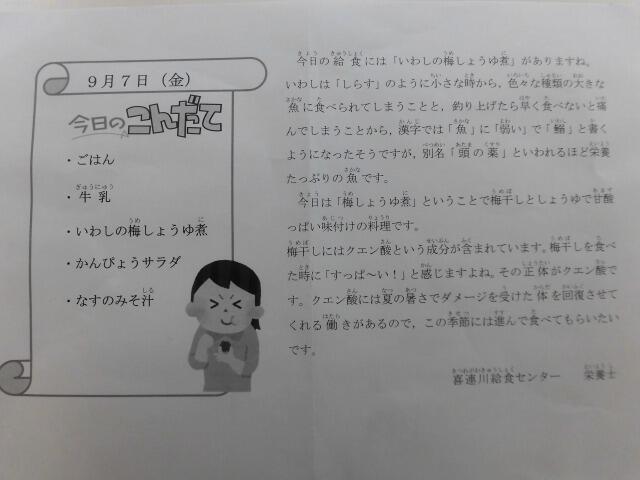 9月7日（金）
今日のこんだて
・ごはん
・牛乳
・いわしの梅しょうゆ煮
・かんぴょうサラダ
・なすのみそ汁
今日の給食には「いわしの梅しょうゆ煮」がありますね。
いわしは「しらす」のように小さな時から，色々な種類の大きな
魚に食べられてしまうことと，釣り上げたら早く食べないと痛
んでしまうことから，漢字では「魚」に「弱い」で「鰯」と書く
ようになったそうですが，別名「頭の薬」といわれるほど栄養
たっぷりの魚です。
今日は「梅しょうゆ煮」ということで梅干しとしょうゆで甘酸
っぱい味付けの料理です。
梅干しにはクエン酸という成分が含まれています。梅干しを食べ
た時に「すっぱ～い！」と感じますよね。その正体がクエン酸で
す。クエン酸には夏の暑さでダメージを受けた体を回復させて
くれる働きがあるので，この季節には進んで食べてもらいたい
です。
喜連川給食センター　栄養士